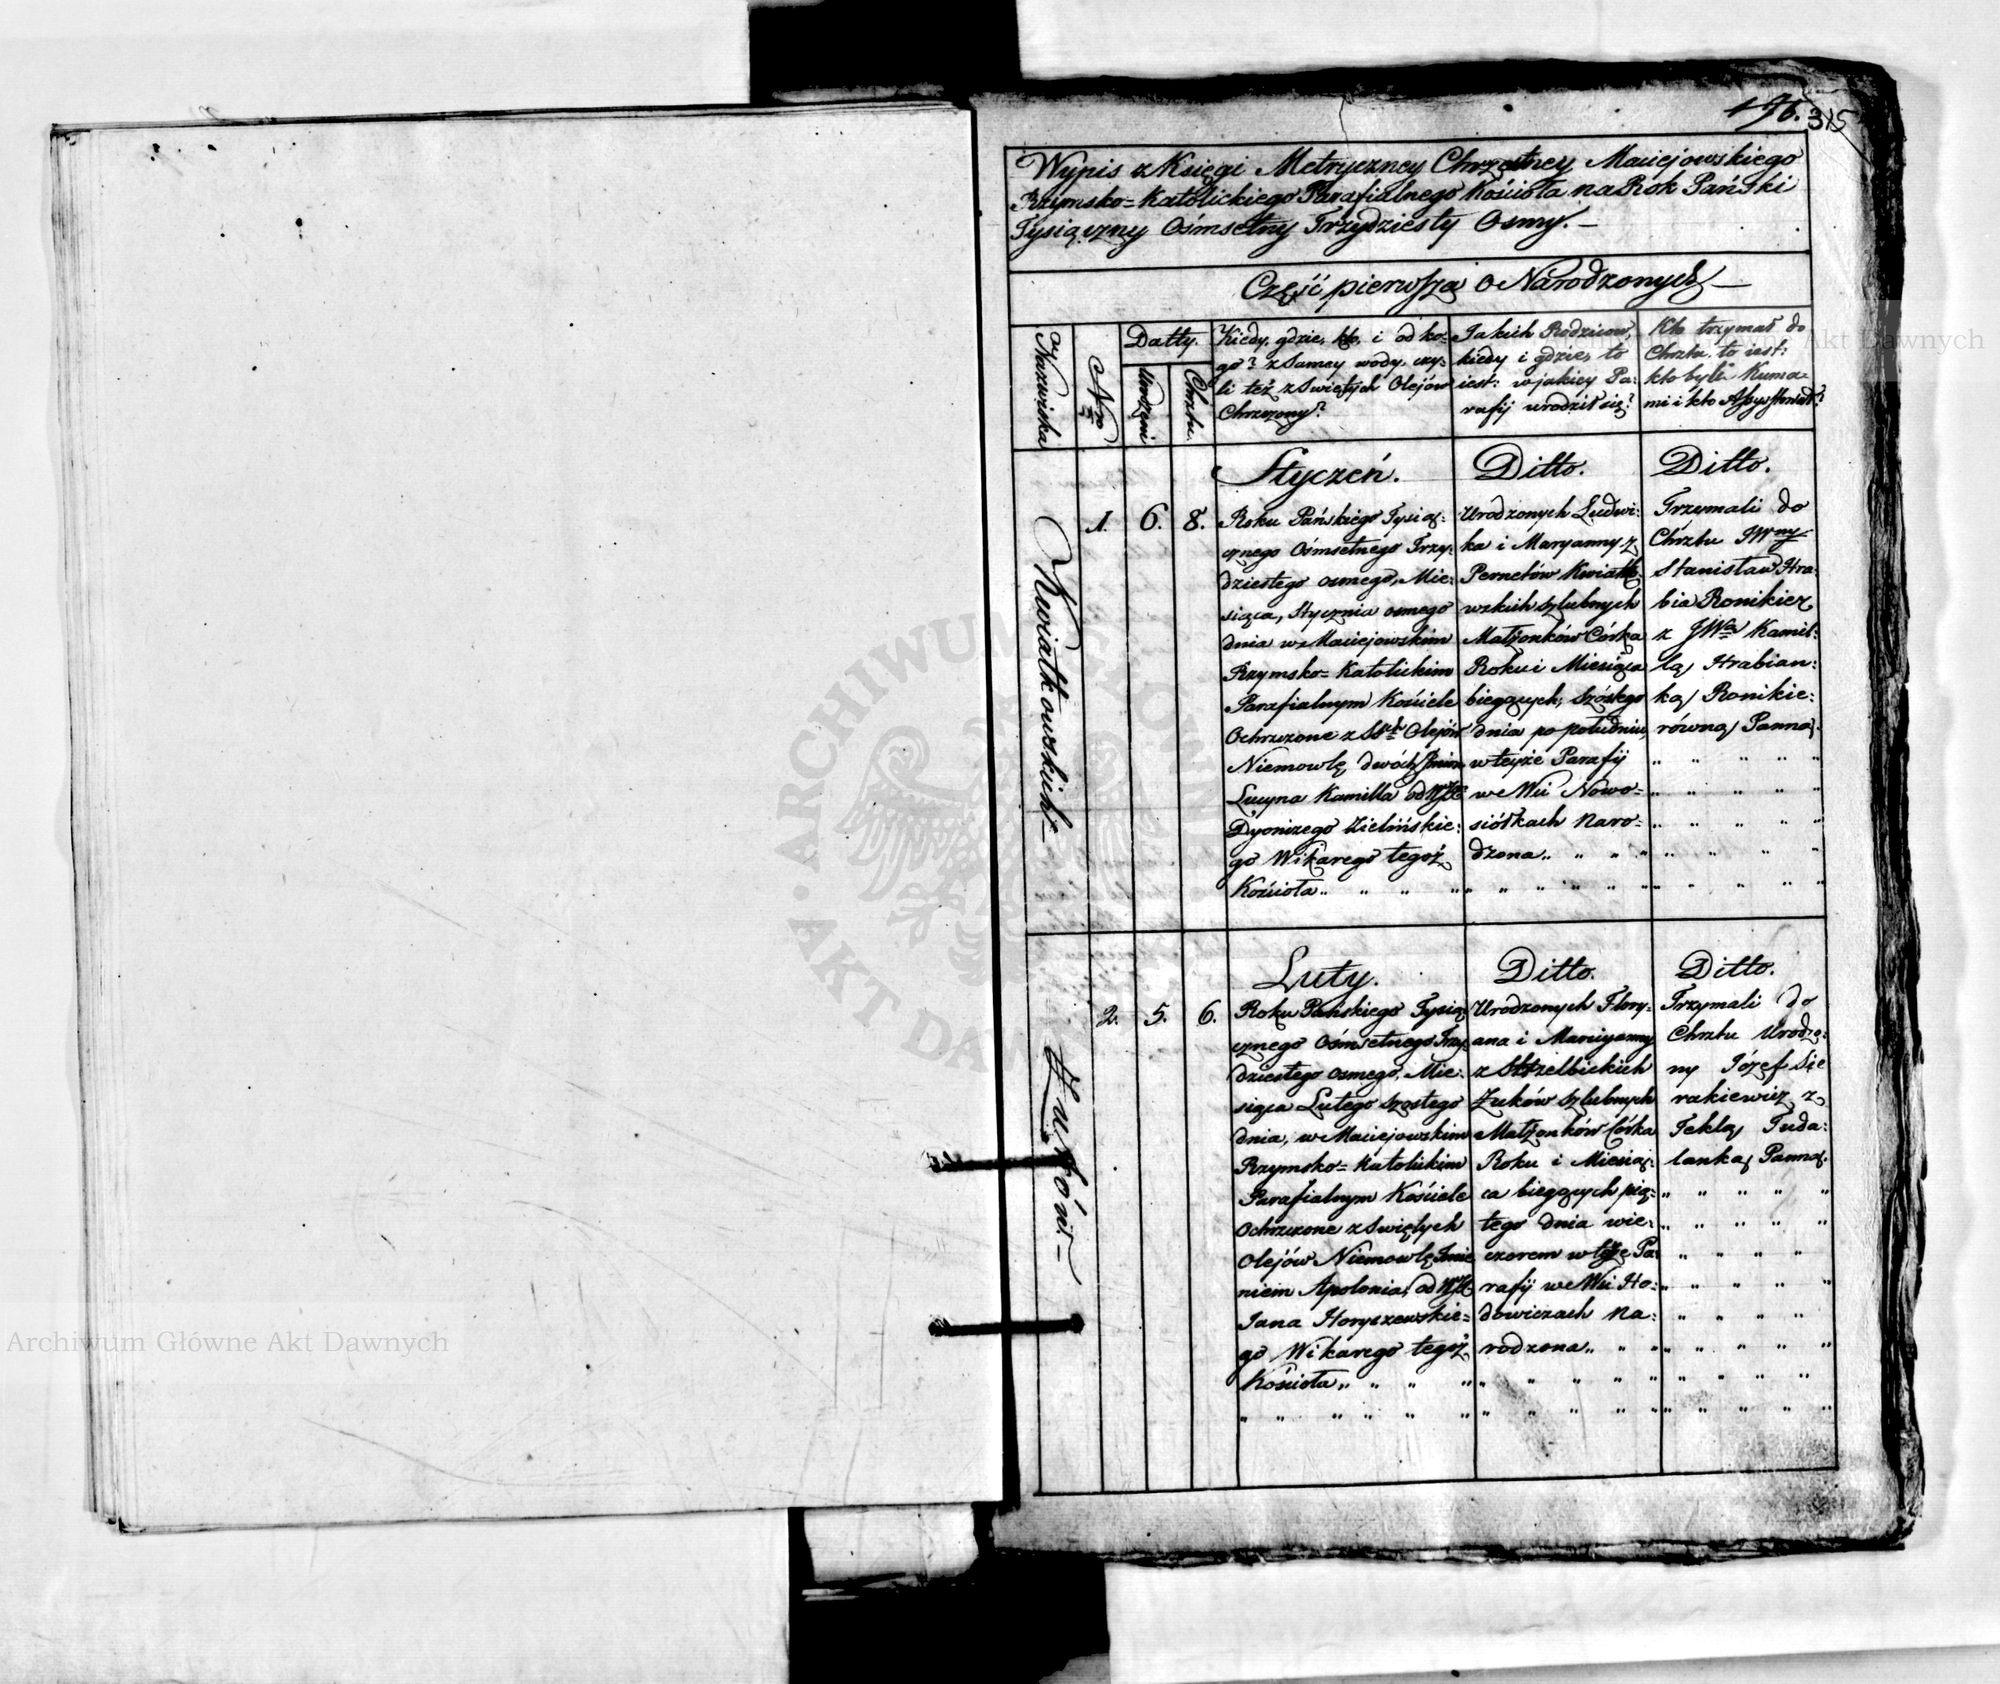 176. 315
Wypis z Księgi Metryczney Chrzestney Maciejowskiego
Rzymsko=Katolickiego Parafialnego Kościoła na Rok Pański
Tysiączny Ośmsetny Trzydziesty Osmy.—
Część pierwsza o Narodzonych—
Nazwiska
Nro
Datty.
Urodzeni
Chrztu.
Kiedy, gdzie, kto, i od ko=
go? z Samey wody, czy=
li też z Swiętych Olejów
Chrzczony?
Jakich Rodziców,
kiedy i gdzie, to
iest: w jakiey Pa=
rafij urodził się?
Kto trzymał do
Chrztu, to iest:
kto byli Kuma=
mi i kto Assystował?
Kwiatkowskich—
1. 6. 8.
Styczeń.
Roku Pańskiego Tysią=
cznego Ośmsetnego Trzy=
dziestego osmego, Mie=
siąca, Stycznia osmego
dnia w Maciejowskim
Rzymsko=Katolickim
Parafialnym Kościele
Ochrzczone z SSch Olejów
Niemowlę dwóch Jmion
Lucyna Kamilla od WJX
Dyonizego Zielińskie=
go Wikarego tegoż
Kościoła „ „ „ „
Ditto.
Urodzonych Ludwi=
ka i Maryanny z
Pernetów Kwiatko=
wskich szlubnych
Małżonków Córka
Roku i Miesiąca
biegących, Szóstego
dnia po południu,
w teyże Parafij
we Wsi Nowo=
siółkach naro=
dzona „ „ „ „
„ „ „ „ „ „
Ditto.
Trzymali do
Chrztu JWny
Stanisław Hra=
bia Ronikier
z JWą Kamil=
lą Hrabian=
ką Ronikie=
równą Panną.
„ „ „ „ „
„ „ „ „ „
„ „ „ „ „
„ „ „ „ „
„ „ „ „ „
Żuków—
2. 5. 6.
Luty.
Roku Pańskiego Tysią
cznego Ośmsetnego Trzy=
dziestego osmego, Mie=
siąca Lutego szostego
dnia, w Maciejowskim
Rzymsko=Katolickim
Parafialnym Kościele
Ochrzczone z Swiętych
Olejów Niemowlę Jmie
niem Apolonia, od WJX
Jana Horyszewskie=
go Wikarego tegoż
Kościoła „ „ „ „
„ „ „ „ „ „
Ditto.
Urodzonych Flory=
ana i Maryanny
z Strzelbickich
Żuków szlubnych
Małżonków Córka
Roku i Miesią=
ca biegących pią=
tego dnia wie=
czorem w tyże Pa=
rafij we Wsi Ho=
dowiczach na=
rodzona „ „ „
„ „ „ „ „ „
„ „ „ „ „
Ditto.
Trzymali do
Chrztu Urodzo=
ny Józef Sie
rakiewicz z
Teklą Fuda=
lanką Panną.
„ „ „ „ „
„ „ „ „ „
„ „ „ „
„ „ „ „ „
„ „ „ „
„ „ „ „ „
„ „ „ „
„ „ „ „ „
Archiwum Główne Akt Dawnych
Archiwum Główne Akt Dawnych
ARCHIWUM GŁÓWNE · AKT DAWNYCH